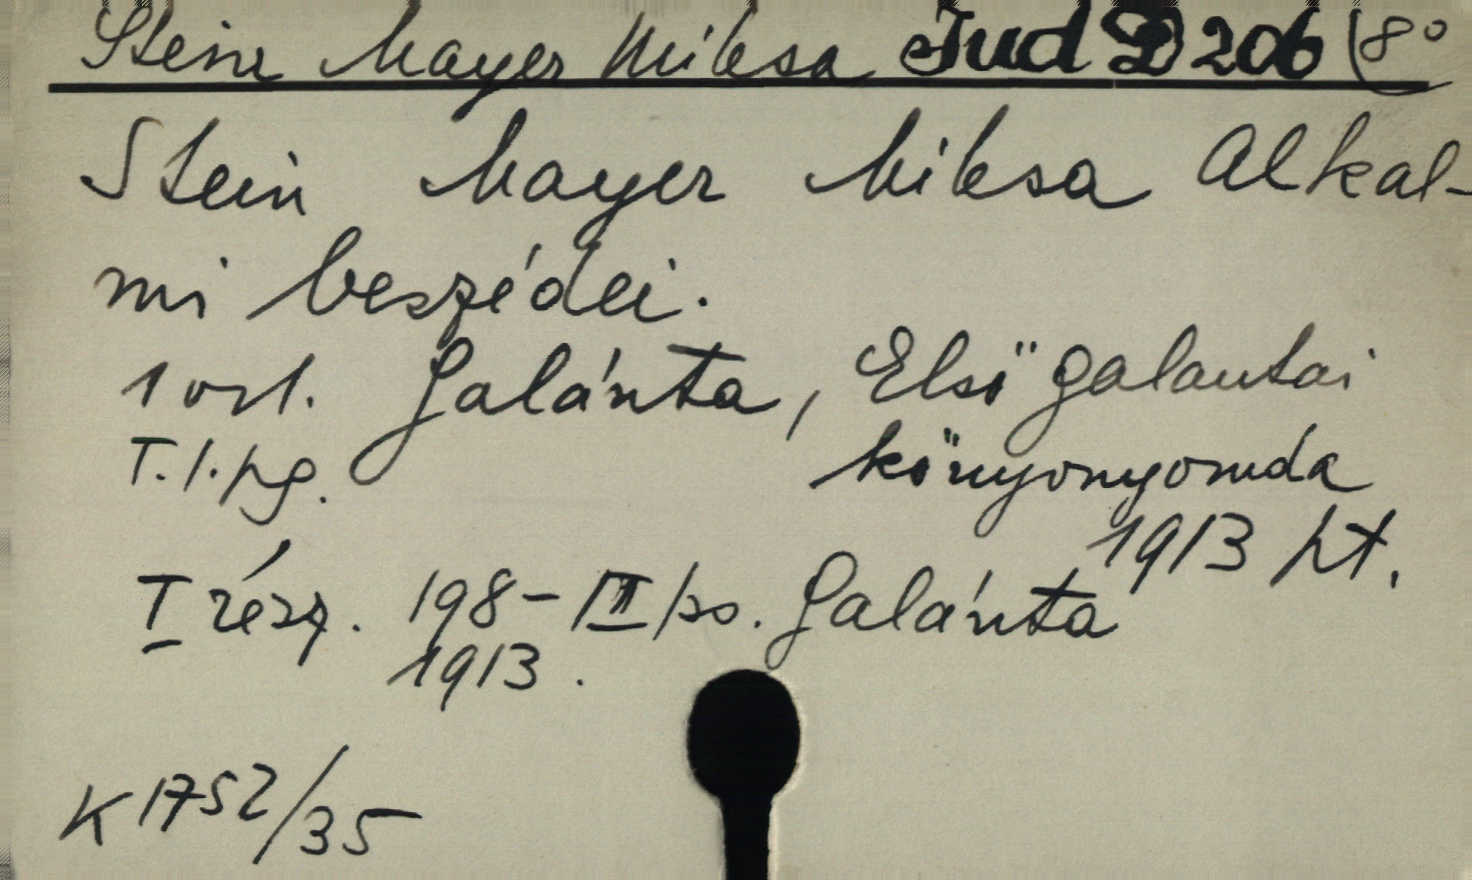 Stein Mayer Miksa Jud D 206 (8°
Stein Mayer Miksa Alkal-
mi beszédei.
1 vol. Galánta, Első galantai
T. l. pg. könyvnyomda
1913 pt.
I rész. 198 - III ps. Galánta
1913.
K 1752/35